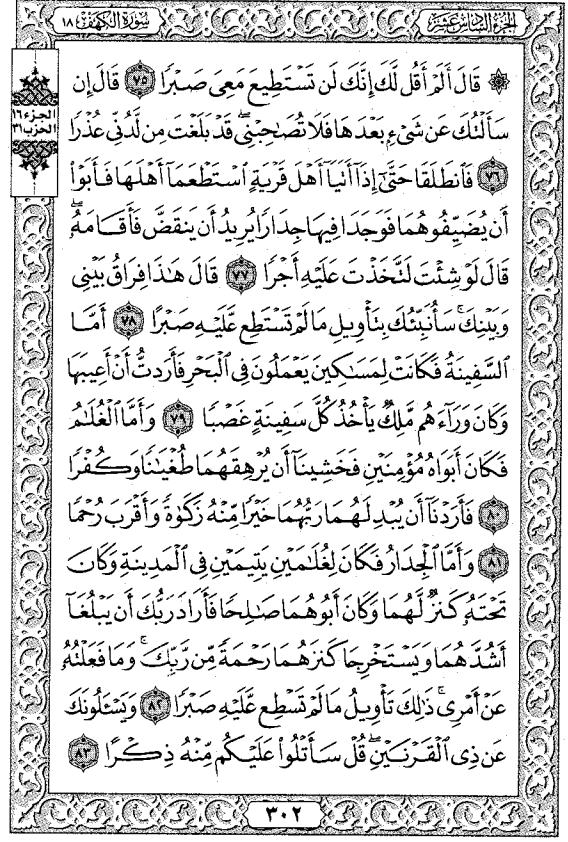 الجزء السادس عشر
سورة الكهف ١٨
الجزء ١٦
الحزب ٣١
۞ قَالَ أَلَمْ أَقُل لَّكَ إِنَّكَ لَن تَسْتَطِيعَ مَعِيَ صَبْرًا ٧٥ قَالَ إِن
سَأَلْتُكَ عَن شَيْءٍ بَعْدَهَا فَلَا تُصَٰحِبْنِي ۖ قَدْ بَلَغْتَ مِن لَّدُنِّي عُذْرًا
٧٦ فَٱنطَلَقَا حَتَّىٰٓ إِذَآ أَتَيَآ أَهْلَ قَرْيَةٍ ٱسْتَطْعَمَآ أَهْلَهَا فَأَبَوْا۟
أَن يُضَيِّفُوهُمَا فَوَجَدَا فِيهَا جِدَارًا يُرِيدُ أَن يَنقَضَّ فَأَقَامَهُۥ ۖ
قَالَ لَوْ شِئْتَ لَتَّخَذْتَ عَلَيْهِ أَجْرًا ٧٧ قَالَ هَٰذَا فِرَاقُ بَيْنِي
وَبَيْنِكَ ۚ سَأُنَبِّئُكَ بِتَأْوِيلِ مَا لَمْ تَسْتَطِع عَّلَيْهِ صَبْرًا ٧٨ أَمَّا
ٱلسَّفِينَةُ فَكَانَتْ لِمَسَٰكِينَ يَعْمَلُونَ فِي ٱلْبَحْرِ فَأَرَدتُّ أَنْ أَعِيبَهَا
وَكَانَ وَرَآءَهُم مَّلِكٌ يَأْخُذُ كُلَّ سَفِينَةٍ غَصْبًا ٧٩ وَأَمَّا ٱلْغُلَٰمُ
فَكَانَ أَبَوَاهُ مُؤْمِنَيْنِ فَخَشِينَآ أَن يُرْهِقَهُمَا طُغْيَٰنًا وَكُفْرًا
٨٠ فَأَرَدْنَآ أَن يُبْدِلَهُمَا رَبُّهُمَا خَيْرًا مِّنْهُ زَكَوٰةً وَأَقْرَبَ رُحْمًا
٨١ وَأَمَّا ٱلْجِدَارُ فَكَانَ لِغُلَٰمَيْنِ يَتِيمَيْنِ فِي ٱلْمَدِينَةِ وَكَانَ
تَحْتَهُۥ كَنزٌ لَّهُمَا وَكَانَ أَبُوهُمَا صَٰلِحًا فَأَرَادَ رَبُّكَ أَن يَبْلُغَآ
أَشُدَّهُمَا وَيَسْتَخْرِجَا كَنزَهُمَا رَحْمَةً مِّن رَّبِّكَ ۚ وَمَا فَعَلْتُهُۥ
عَنْ أَمْرِي ۚ ذَٰلِكَ تَأْوِيلُ مَا لَمْ تَسْطِع عَّلَيْهِ صَبْرًا ٨٢ وَيَسْـَٔلُونَكَ
عَن ذِي ٱلْقَرْنَيْنِ ۖ قُلْ سَأَتْلُوا۟ عَلَيْكُم مِّنْهُ ذِكْرًا ٨٣
٣٠٢